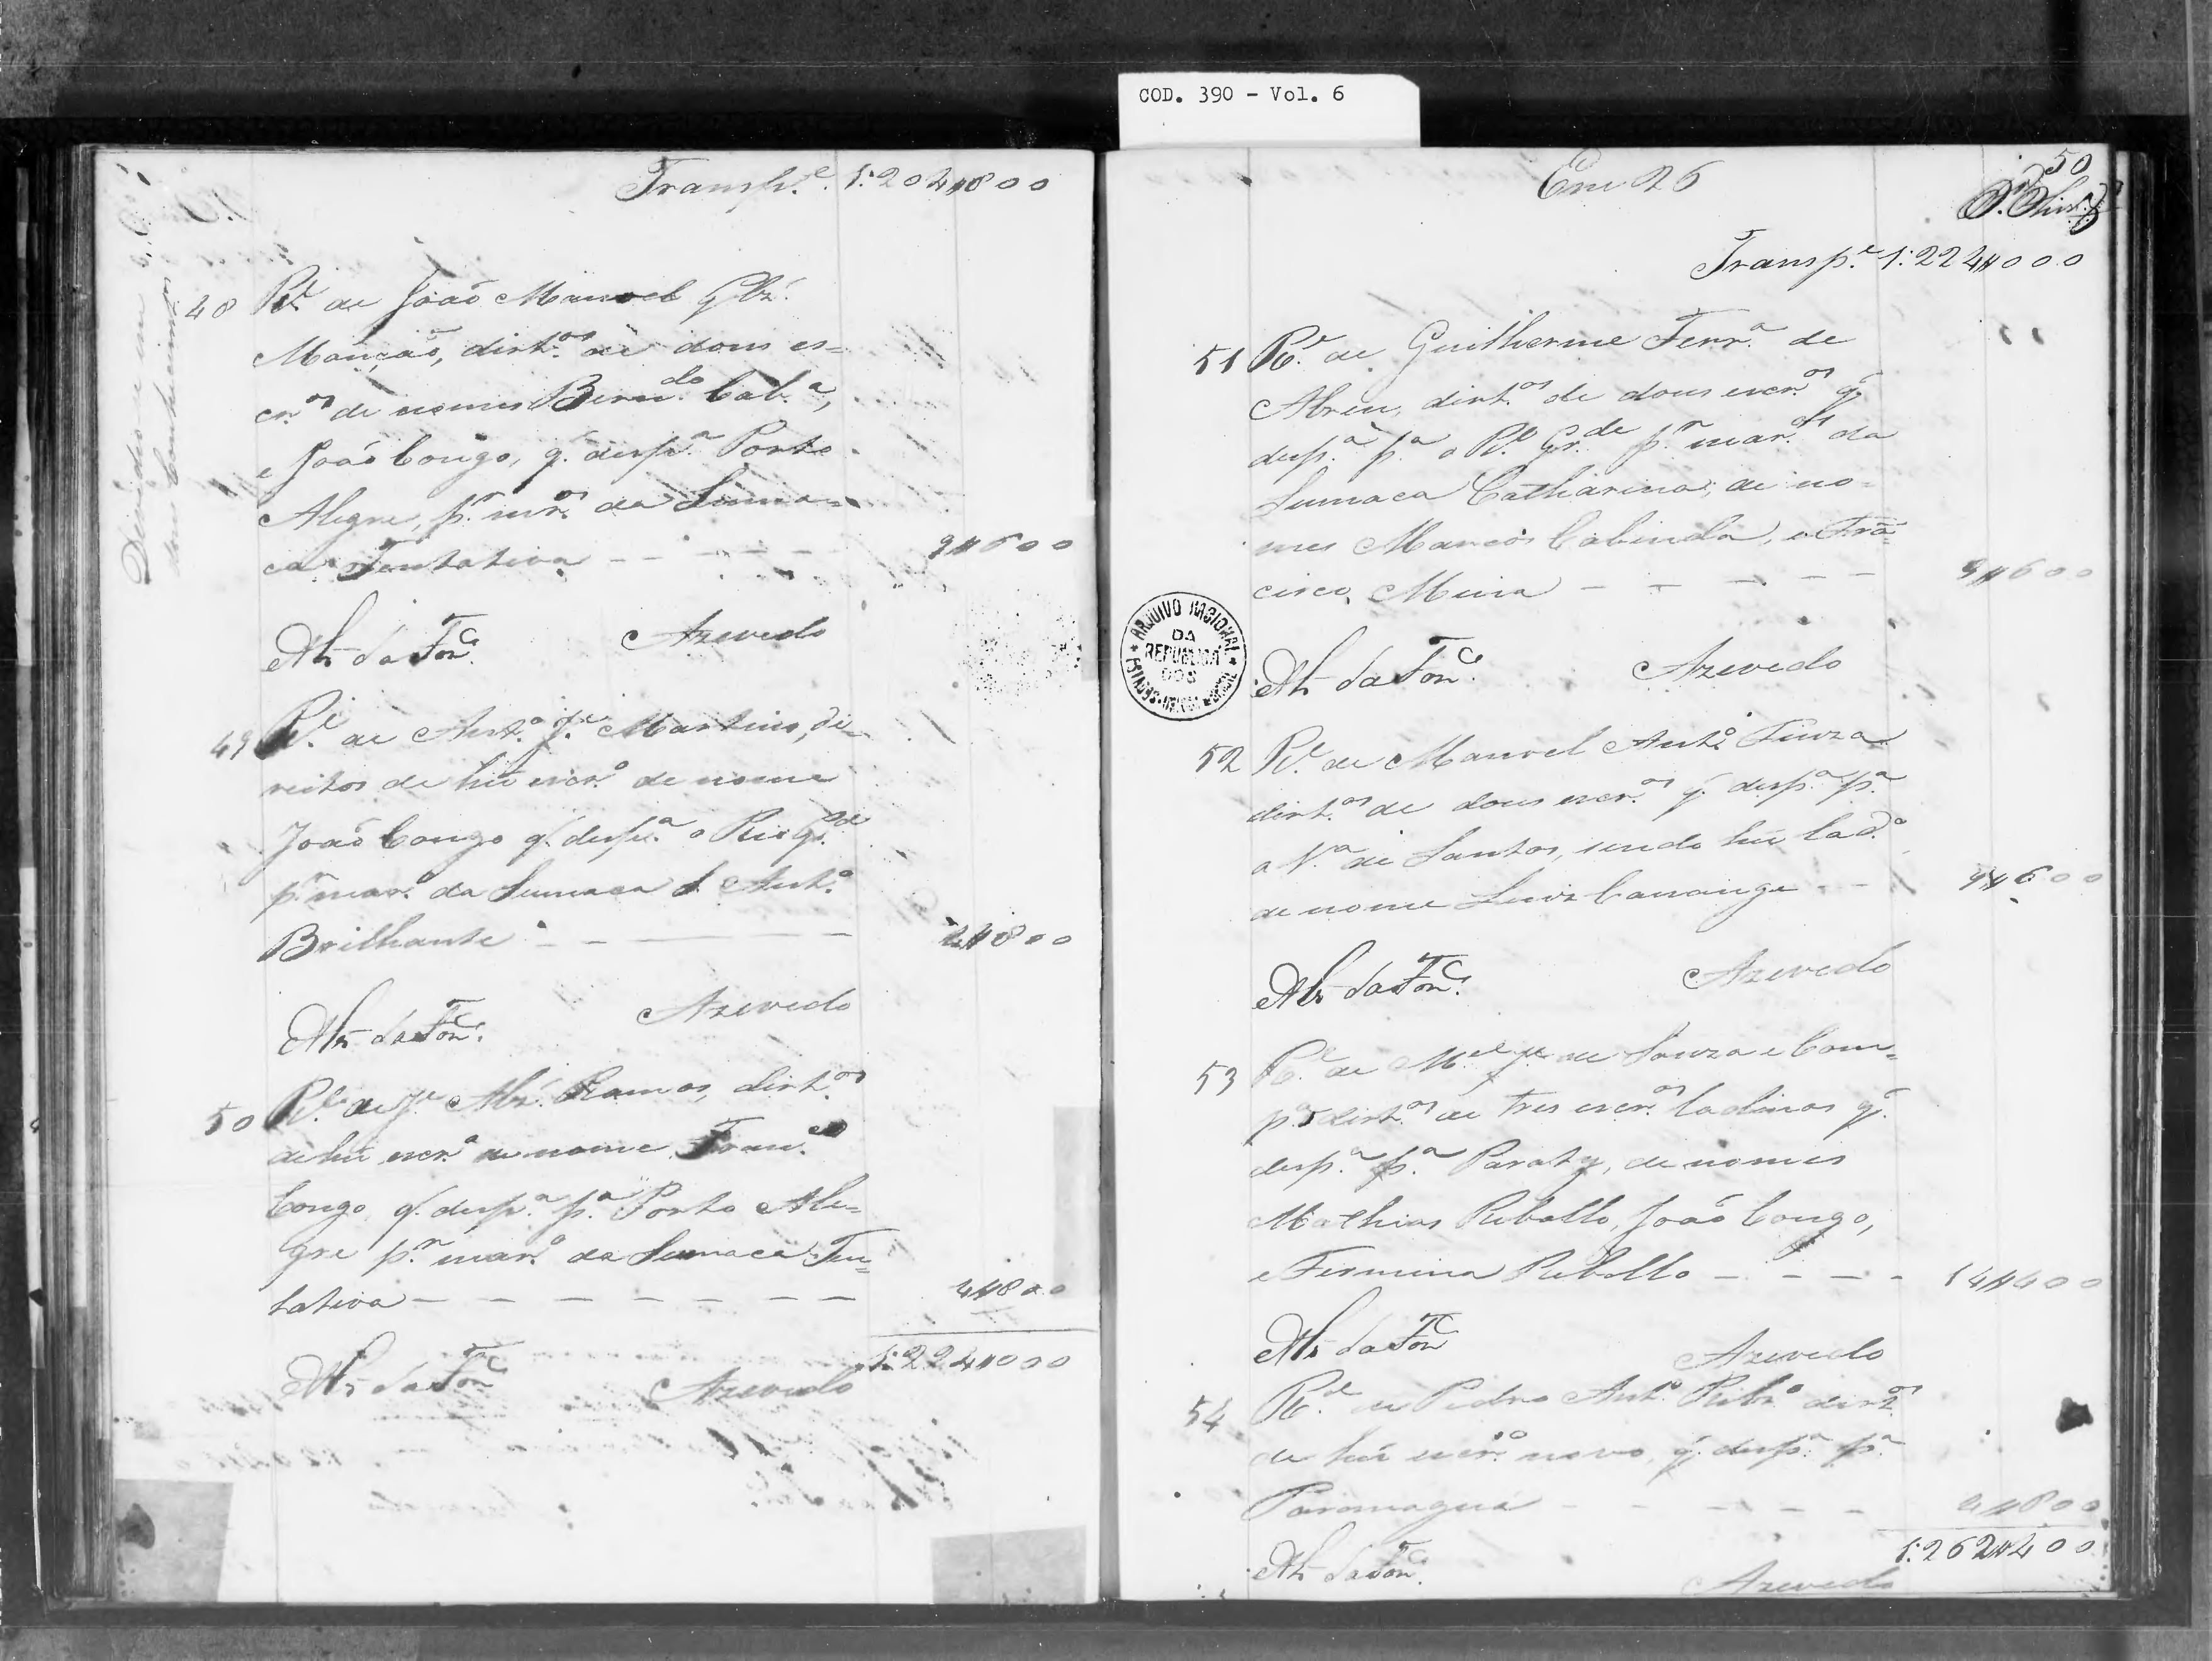 COD. 390 - Vol. 6
Transp.e 1:204#800
Dividio-se em
dous Conhecimtos
48 R.e de João Manoel Glz.'
Mansão, dirt.os de dous es=
cr.os de nomes Bern.do Cab.a,
e João Congo, q.' desp.a Porto
Alegre, p.r mr.os da Suma=
ca Tentativa - - - - - 9#600
Alz da Fon.ca Azevedo
49 R.e de Ant.o J.e Martins, di=
reitos de hũ escr.o de nome
João Congo q' desp.a o Rio Gr.de
p.r mar.o da Sumaca S. Ant.o
Brilhante - - - 4#800
Alz da Fon.ca Azevedo
50 R.e de J.e Alz.' Ramos, dirt.os
de hũ escr.o de nome Fran.co
Congo, q.' desp.a p.a Porto Ale=
gre p.r mar.o da Sumaca Ten=
tativa - - - - - - - 4#800
1:224#000
Alz da Fon.ca Azevedo
Em 26
50
Transp.e 1:224#000
51 R.e de Guilherme Ferr.a de
Abreu, dirt.os de dous escr.os q'
desp.a p.a o R.o Gr.de p.r mar.os da
Sumaca Catharina, de no=
mes Marcos Cabinda, e Frã=
cisco Mina - - - - - 9#600
Alz da Fon.ca Azevedo
52 R.e de Manoel Ant.o Fiuza
dirt.os de dous escr.os q.' desp.a p.a
a V.a de Santos, sendo hũ lad.o
de nome Luiz Cassange - - 9#600
Alz da Fon.ca Azevedo
53 R.e de M.el J.e de Souza e Com=
p.a dirt.os de tres escr.os ladinos q.'
desp.a p.a Paraty, de nomes
Mathias Rebollo, João Congo,
e Firmina Rebollo - - - - 14#400
Alz da Fon.ca Azevedo
54 R.e de Pedro Ant.o Ribr.o dirt.os
de hũ escr.o novo, q.' desp.a p.a
Parnaguá - - - - - 4#800
1:262#400
Alz da Fon.ca Azevedo
ARQUIVO NACIONAL
DA
REPUBLICA
DOS